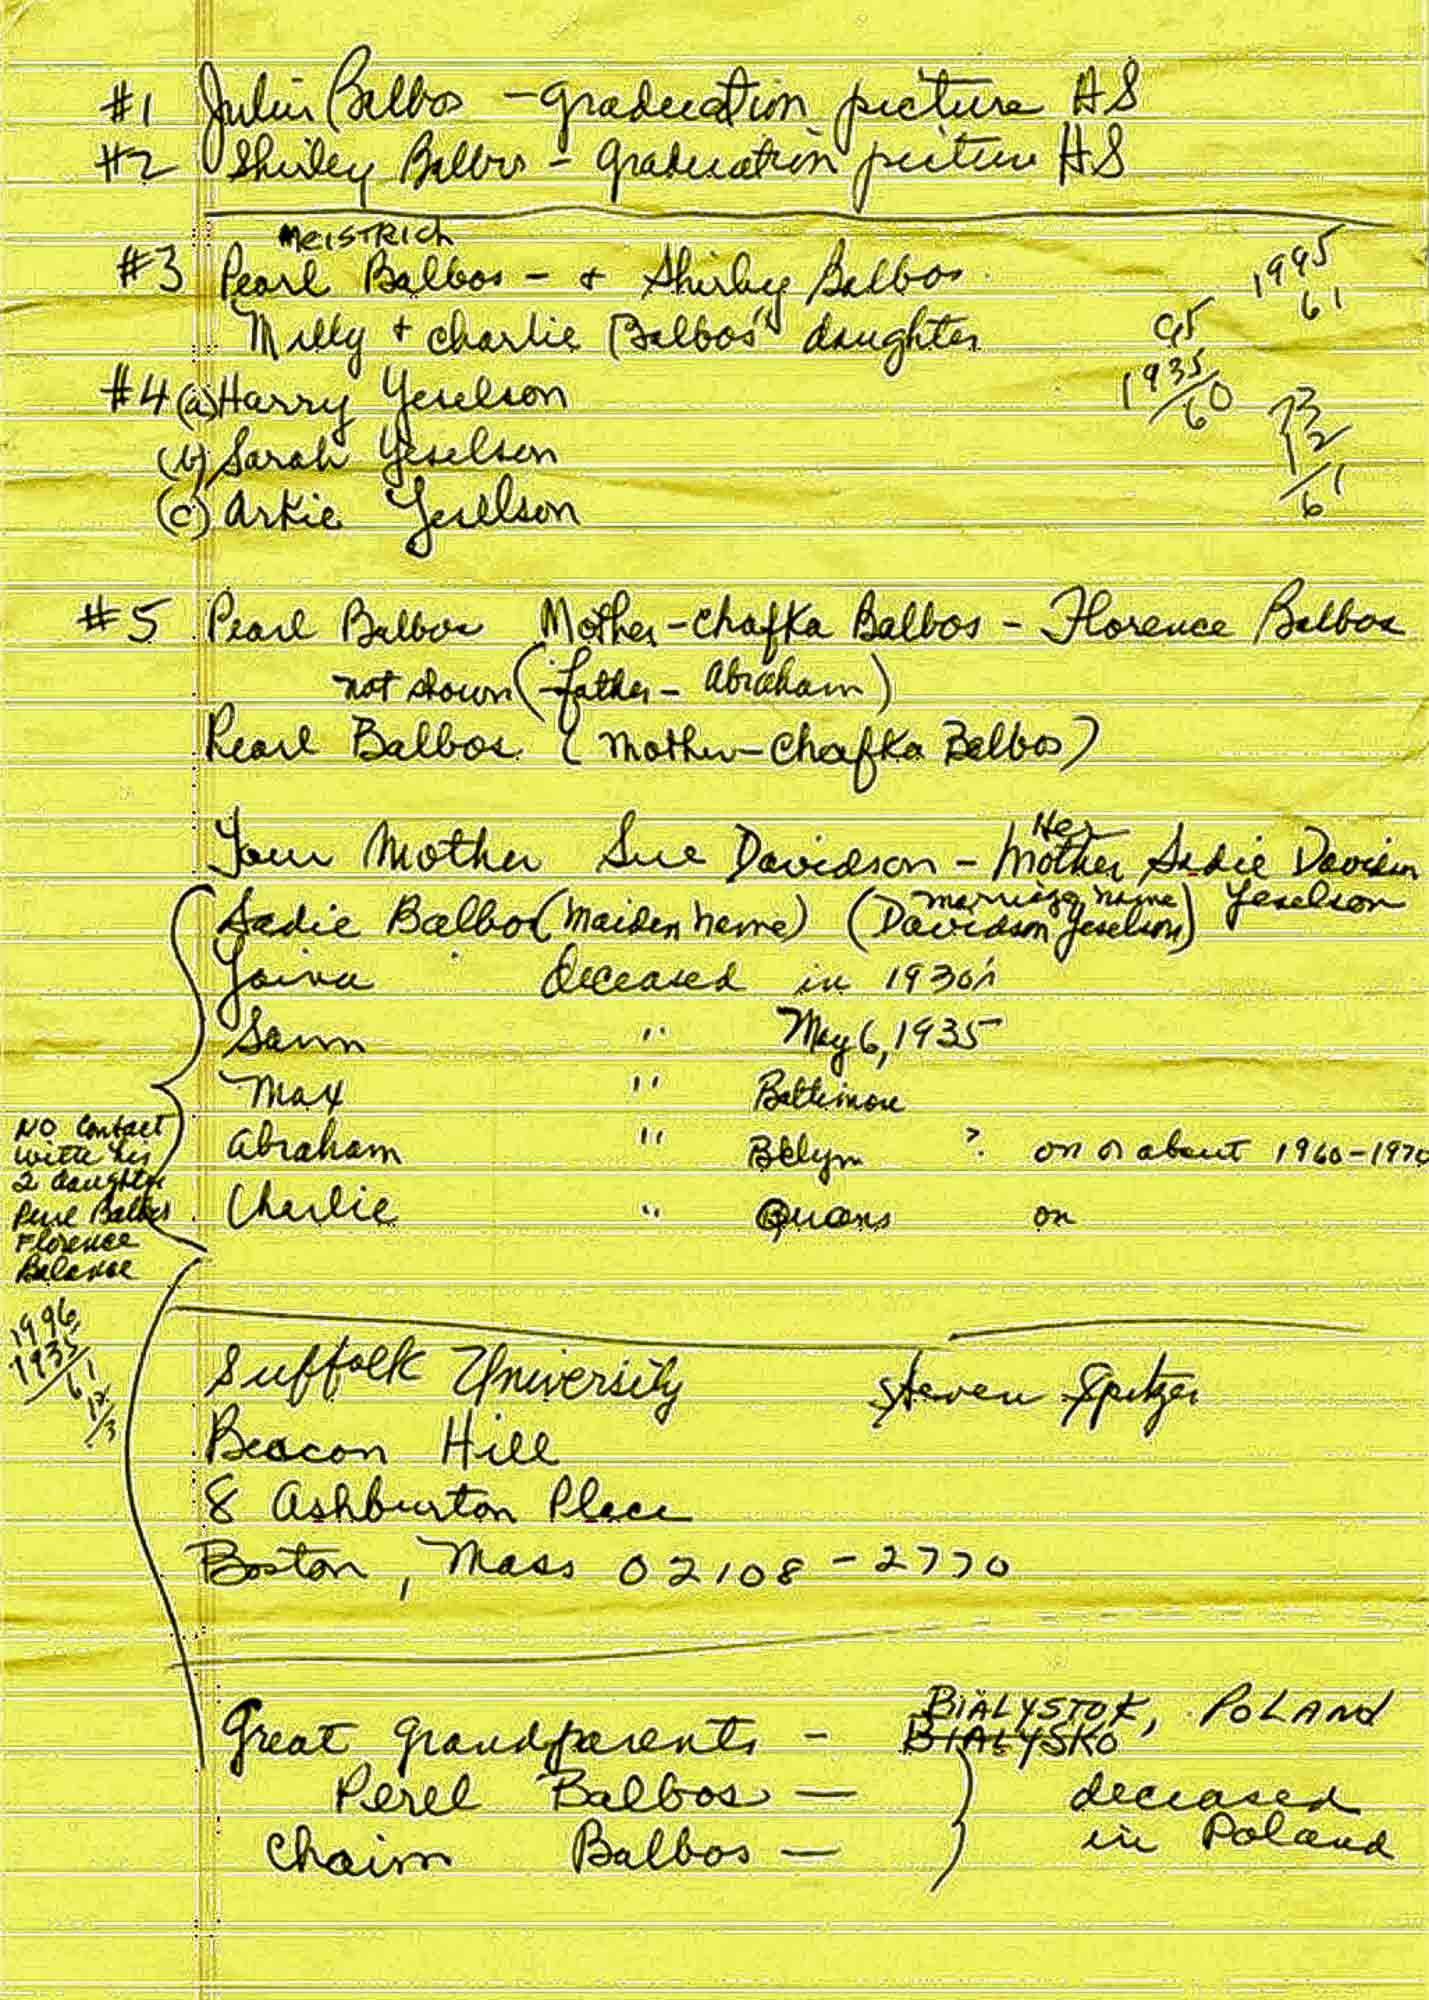 #1 Julius Balbos - graduation picture HS
#2 Shirley Balbos - graduation picture HS
MEISTRICH
#3 Pearl Balbos - & Shirley Balbos
Milly & Charlie Balbos' daughter
1995
61
95
1935
60
#4 (a) Harry Yeselson
(b) Sarah Yeselson
(c) Arkie Yeselson
61
#5 Pearl Balbos Mother - Chafka Balbos - Florence Balbos
not shown (- father - Abraham)
Pearl Balbos (Mother - Chafka Balbos)
Your Mother Sue Davidson - Her Mother Sadie Davidson
Sadie Balbos (Maiden Name) (marriage name Davidson Yeselson) Yeselson
deceased in 1930's
Sam " May 6, 1935
Max " Baltimore
Abraham " Bklyn ? on or about 1960-1970
Charlie " Queens on
NO Contact
with his
2 daughters
Perl Balbos
Florence
1996
1935
61
12
/3
Suffolk University Steven Spitzer
Beacon Hill
8 Ashburton Place
Boston, Mass 02108-2770
BIALYSTOK, POLAND
Great grandparents - BIALYSKO
Perel Balbos - deceased
Chaim Balbos - in Poland